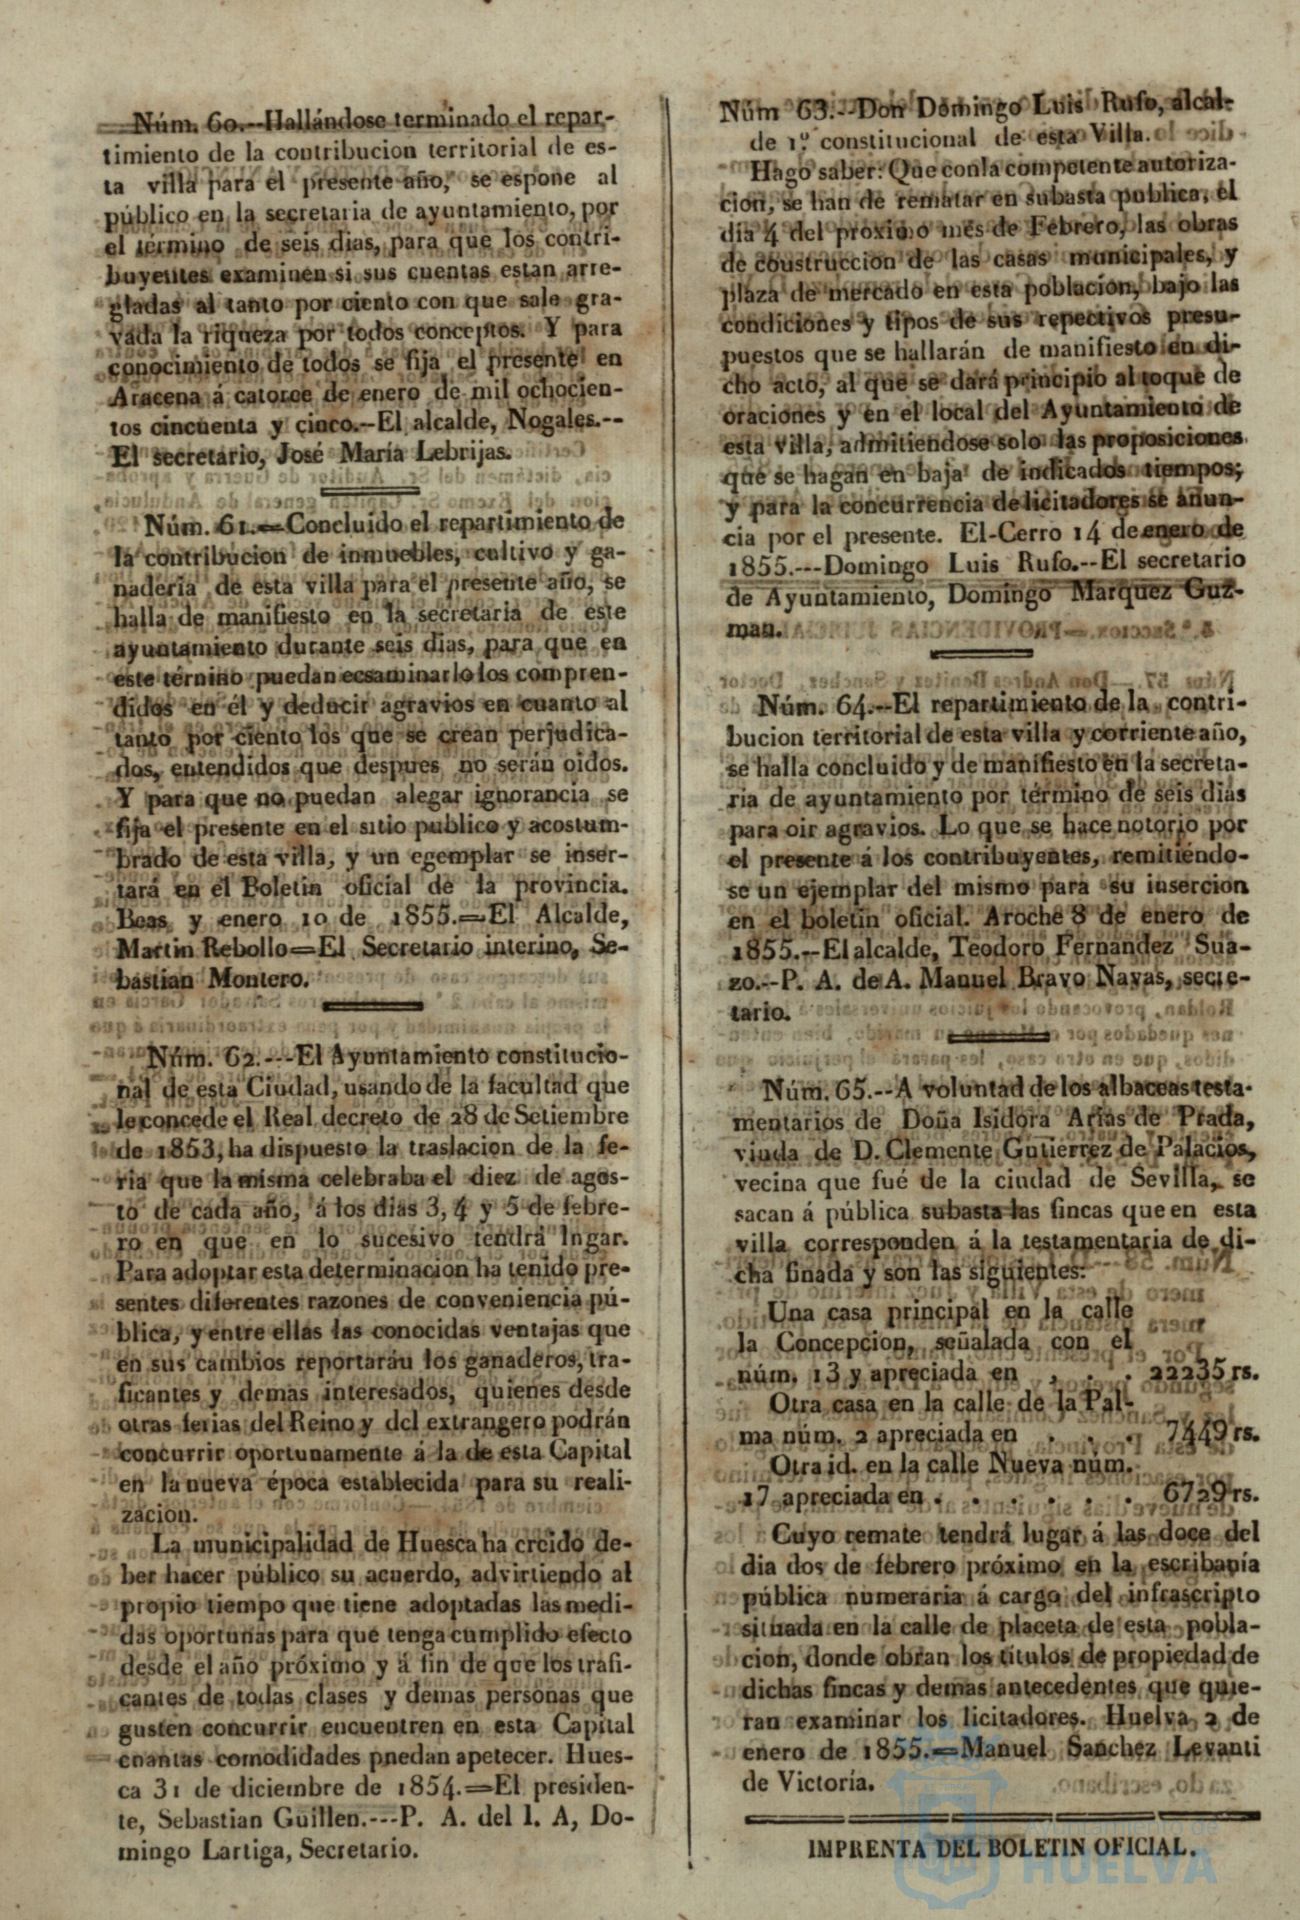 Núm. 60.--Hallándose terminado el repar-
timiento de la contribucion territorial de es-
ta villa para el presente año, se espone al
público en la secretaria de ayuntamiento, por
el término de seis dias, para que los contri-
buyentes examinen si sus cuentas estan arre-
gladas al tanto por ciento con que sale gra-
vada la riqueza por todos conceptos. Y para
conocimiento de todos se fija el presente en
Aracena á catorce de enero de mil ochocien-
tos cincuenta y cinco.--El alcalde, Nogales.--
El secretario, José María Lebrijas.
Núm. 61.=Concluido el repartimiento de
la contribucion de inmuebles, cultivo y ga-
naderia de esta villa para el presente año, se
halla de manifiesto en la secretaria de este
ayuntamiento durante seis dias, para que en
este término puedan ecsaminarlo los compren-
didos en él y deducir agravios en cuanto al
tanto por ciento los que se crean perjudica-
dos, entendidos que despues no serán oidos.
Y para que no puedan alegar ignorancia se
fija el presente en el sitio publico y acostum-
brado de esta villa, y un egemplar se inser-
tará en el Boletin oficial de la provincia.
Beas y enero 10 de 1855.=El Alcalde,
Martin Rebollo=El Secretario interino, Se-
bastian Montero.
Núm. 62.---El Ayuntamiento constitucio-
nal de esta Ciudad, usando de la facultad que
le concede el Real decreto de 28 de Setiembre
de 1853, ha dispuesto la traslacion de la fe-
ria que la misma celebraba el diez de agos-
to de cada año, á los dias 3, 4 y 5 de febre-
ro en que en lo sucesivo tendrá lngar.
Para adoptar esta determinacion ha tenido pre-
sentes diferentes razones de conveniencia pú-
blica, y entre ellas las conocidas ventajas que
en sus cambios reportaráu los ganaderos, tra-
ficantes y demas interesados, quienes desde
otras ferias del Reino y del extrangero podrán
concurrir oportunamente á la de esta Capital
en la nueva época establecida para su reali-
zacion.
La municipalidad de Huesca ha creido de-
ber hacer público su acuerdo, advirtiendo al
propio tiempo que tiene adoptadas las medi-
das oportunas para que tenga cumplido efecto
desde el año próximo y á fin de que los trafi-
cantes de todas clases y demas personas que
gusten concurrir encuentren en esta Capital
cnantas comodidades pnedan apetecer. Hues-
ca 31 de diciembre de 1854.=El presiden-
te, Sebastian Guillen.---P. A. del I. A, Do-
mingo Lartiga, Secretario.
Núm 63.--Don Domingo Luis Rufo, alcal-
de 1.º constitucional de esta Villa.
Hago saber: Que con la competente autoriza-
cion, se han de rematar en subasta publica, el
dia 4 del próximo mes de Febrero, las obras
de coustruccion de las casas municipales, y
plaza de mercado en esta poblacion, bajo las
condiciones y tipos de sus repectivos presu-
puestos que se hallarán de manifiesto en di-
cho acto, al que se dará principio al toque de
oraciones y en el local del Ayuntamiento de
esta villa, admitiendose solo las proposiciones
que se hagan en baja de indicados tiempos;
y para la concurrencia de licitadores se anun-
cia por el presente. El-Cerro 14 de enero de
1855.---Domingo Luis Rufo.--El secretario
de Ayuntamiento, Domingo Marquez Guz-
man.
Núm. 64.--El repartimiento de la contri-
bucion territorial de esta villa y corriente año,
se halla concluido y de manifiesto en la secreta-
ria de ayuntamiento por término de seis dias
para oir agravios. Lo que se hace notorio por
el presente á los contribuyentes, remitiéndo-
se un ejemplar del mismo para su insercion
en el boletin oficial. Aroche 8 de enero de
1855.--El alcalde, Teodoro Fernandez Sua-
zo.--P. A. de A. Manuel Bravo Navas, secre-
tario.
Núm. 65.--A voluntad de los albaceas testa-
mentarios de Doña Isidora Arias de Prada,
viuda de D. Clemente Gutierrez de Palacios,
vecina que fué de la ciudad de Sevilla, se
sacan á pública subasta las fincas que en esta
villa corresponden á la testamentaria de di-
cha finada y son las siguientes:
Una casa principal en la calle
la Concepcion, señalada con el
núm. 13 y apreciada en , . . 22235 rs.
Otra casa en la calle de la Pal-
ma núm. 2 apreciada en . . . 7449 rs.
Otra id. en la calle Nueva núm.
17 apreciada en . . . . . . 6729 rs.
Cuyo remate tendrá lugar á las doce del
dia dos de febrero próximo en la escribanía
pública numeraria á cargo del infrascripto
situada en la calle de placeta de esta pobla-
cion, donde obran los titulos de propiedad de
dichas fincas y demas antecedentes que quie-
ran examinar los licitadores. Huelva 2 de
enero de 1855.=Manuel Sanchez Levanti
de Victoría.
IMPRENTA DEL BOLETIN OFICIAL.
Ayuntamiento de
HUELVA